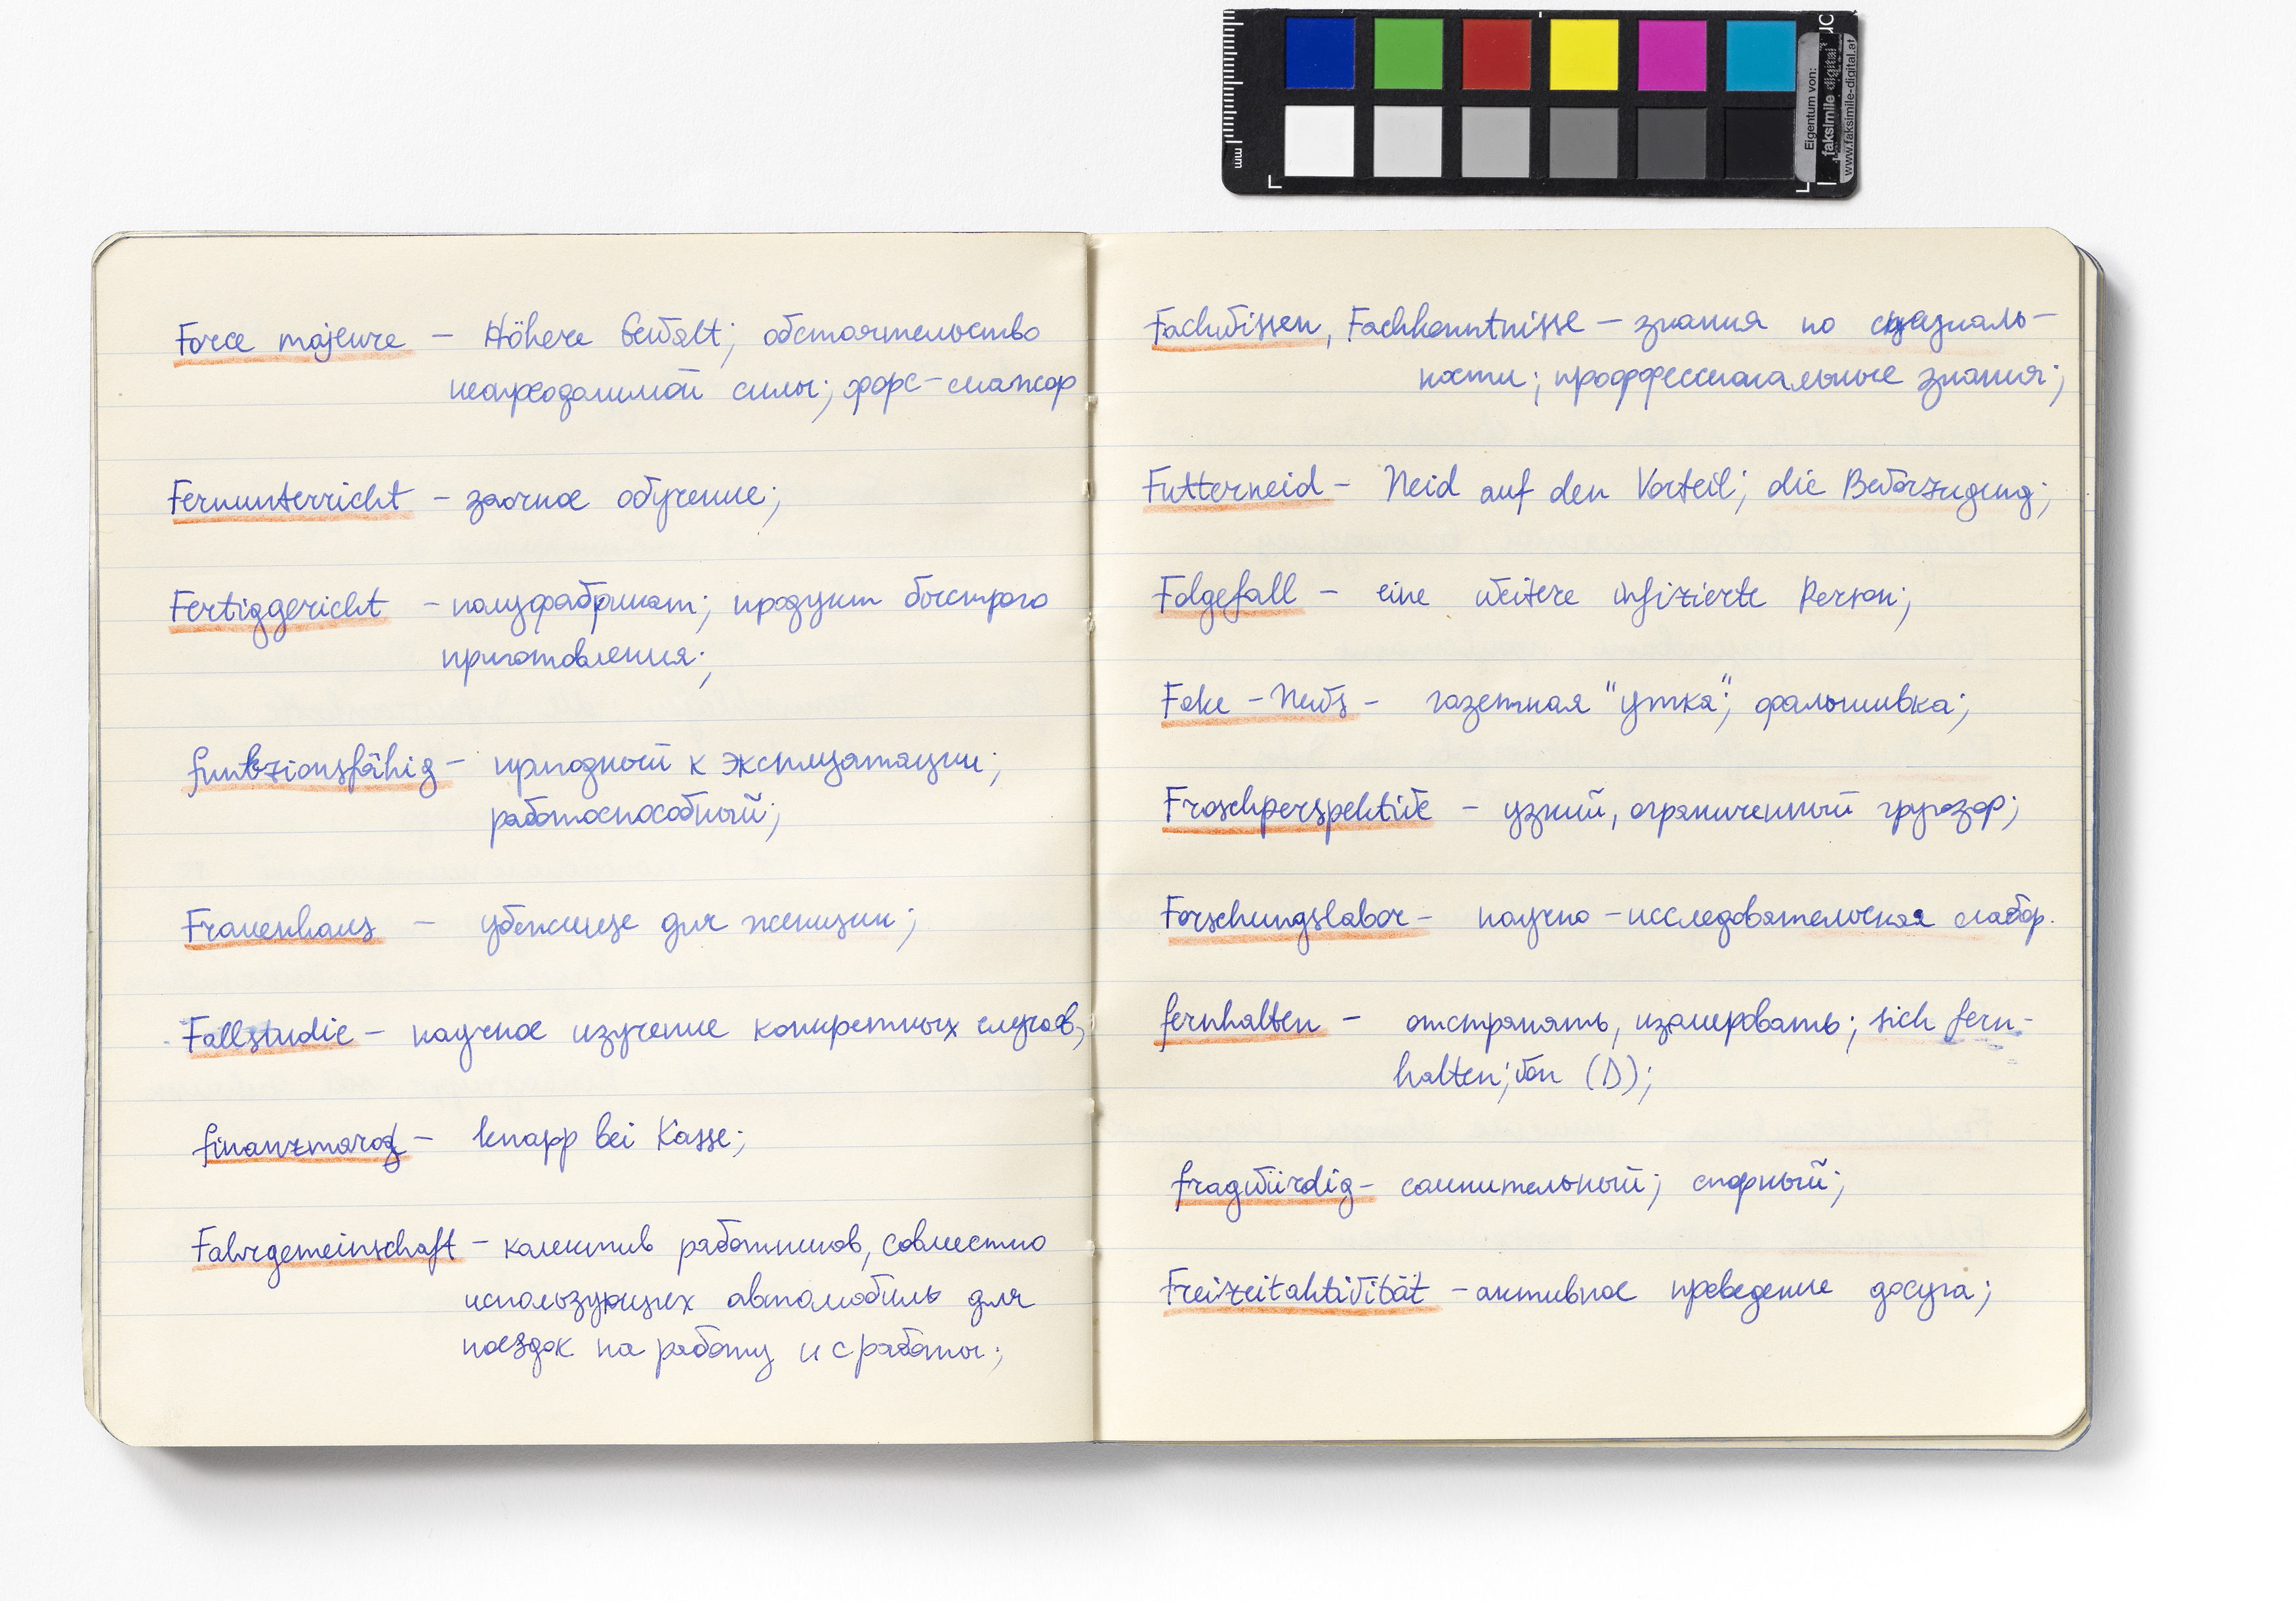 Force majeure – Höhere Gewalt; обстоятельство
непреодолимой силы; форс-мажор
Fernunterricht – заочное обучение;
Fertiggericht – полуфабрикат; продукт быстрого
приготовления;
funktionsfähig – пригодный к эксплуатации;
работоспособный;
Frauenhaus – убежище для женщин;
Fallstudie – научное изучение конкретных случаев,
finanzmarod – knapp bei Kasse;
Fahrgemeinschaft – коллектив работников, совместно
использующих автомобиль для
поездок на работу и с работы;
Fachwissen, Fachkenntnisse – знания по специаль-
ности; проффессиональные знания;
Futterneid – Neid auf den Vorteil; die Bevorzugung;
Folgefall – eine weitere infizierte Person;
Fake-News – газетная "утка"; фальшивка;
Froschperspektive – узкий, ограниченный кругозор;
Forschungslabor – научно-исследовательская лабор.
fernhalten – отстранять, изолировать; sich fern-
halten; von (D);
fragwürdig – сомнительный; спорный;
Freizeitaktivität – активное проведение досуга;
mm
Eigentum von:
faksimile digital
www.faksimile-digital.at